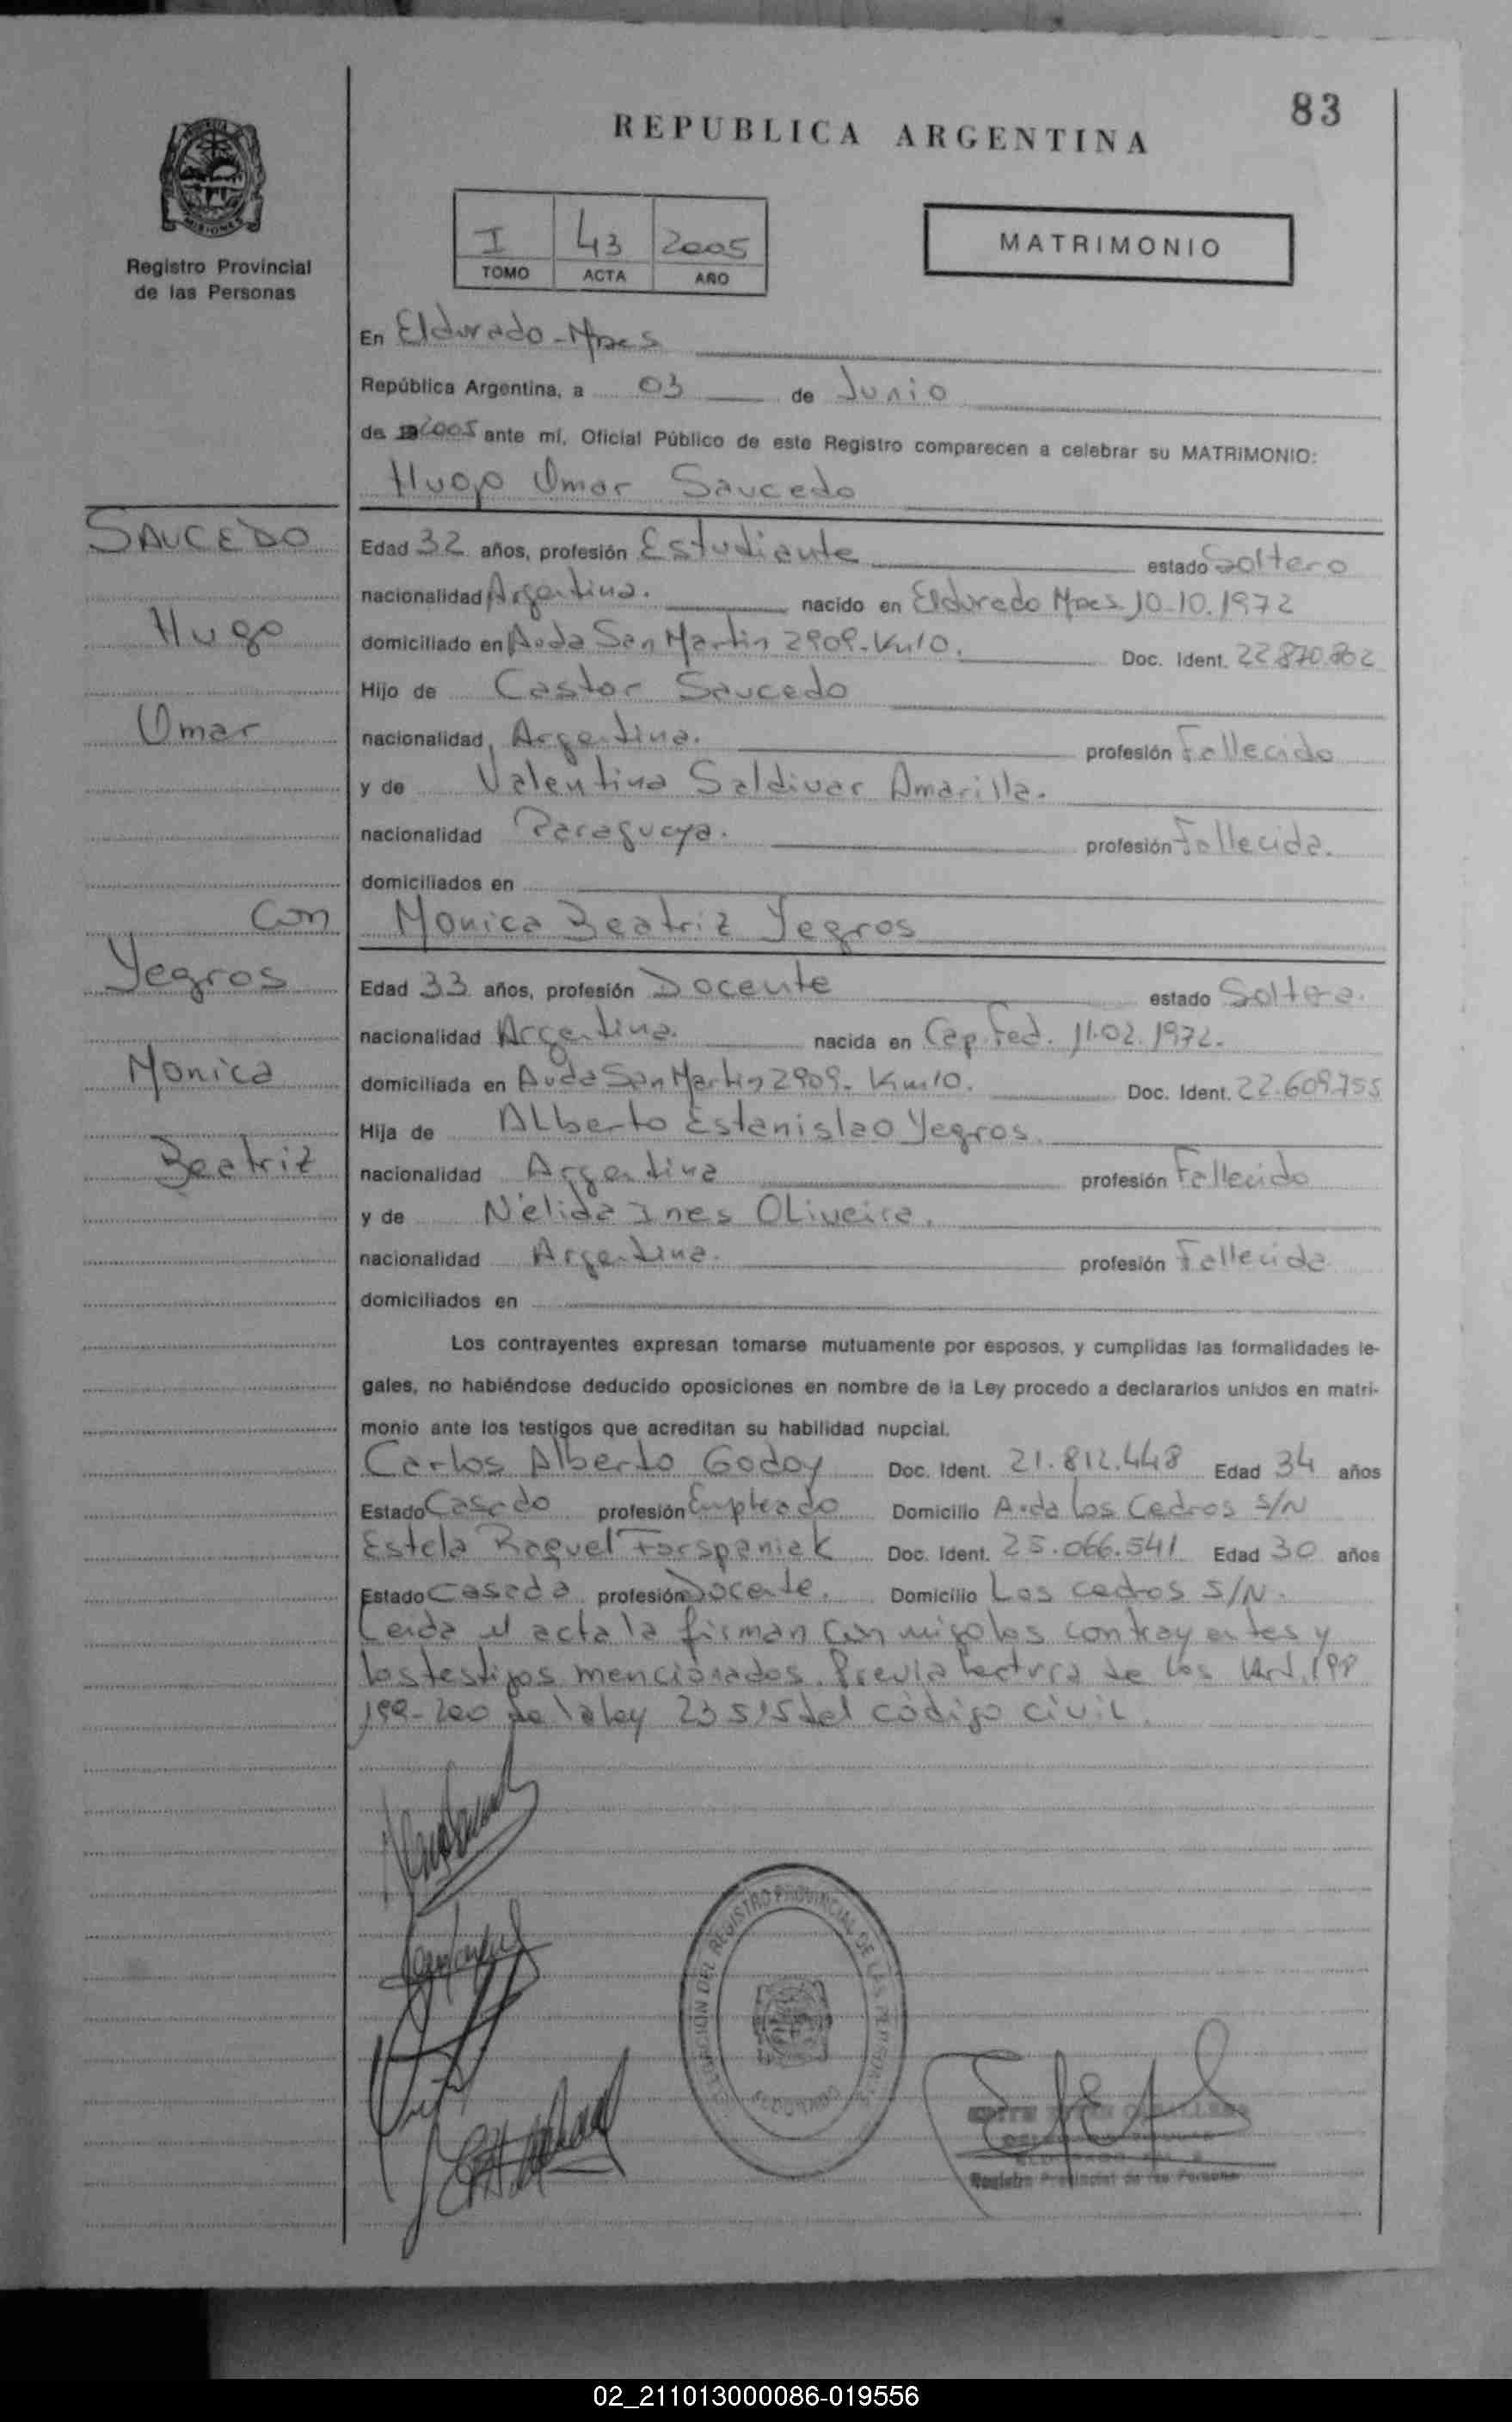 83
REPUBLICA ARGENTINA
Registro Provincial
de las Personas
I 43 2005
TOMO ACTA AÑO
MATRIMONIO
En Eldorado - Mnes
República Argentina, a 03 de Junio
de 2005 ante mí, Oficial Público de este Registro comparecen a celebrar su MATRIMONIO:
Hugo Omar Saucedo
SAUCEDO
Hugo
Omar
Edad 32 años, profesión Estudiante estado Soltero
nacionalidad Argentina. nacido en Eldorado Mnes 10.10.1972
domiciliado en Avda San Martin 2909. Km10. Doc. Ident. 22.870.802
Hijo de Castor Saucedo
nacionalidad Argentina. profesión Fallecido
y de Valentina Saldivar Amarilla.
nacionalidad Paraguaya. profesión Fallecida.
domiciliados en
con
Yegros
Monica
Beatriz
Monica Beatriz Yegros
Edad 33 años, profesión Docente estado Soltera.
nacionalidad Argentina. nacida en Cap. Fed. 11.02.1972.
domiciliada en Avda San Martin 2909. Km10. Doc. Ident. 22.609.755
Hija de Alberto Estanislao Yegros.
nacionalidad Argentina profesión Fallecido
y de Nélida Ines Oliveira.
nacionalidad Argentina. profesión Fallecida
domiciliados en
Los contrayentes expresan tomarse mutuamente por esposos, y cumplidas las formalidades le-
gales, no habiéndose deducido oposiciones en nombre de la Ley procedo a declararlos unidos en matri-
monio ante los testigos que acreditan su habilidad nupcial.
Carlos Alberto Godoy Doc. Ident. 21.812.448 Edad 34 años
Estado Casado profesión Empleado Domicilio Avda Los Cedros S/N
Estela Raquel Forspaniak Doc. Ident. 25.066.541 Edad 30 años
Estado Casada profesión Docente. Domicilio Los cedros S/N.
Leida el acta la firman con migo los contrayentes y
los testigos mencionados. Previa lectura de los Art. 198
199-200 de la ley 23515 del código civil.
REGISTRO PROVINCIAL DE LAS PERSONAS
ELDORADO
Registro Provincial de las Personas
02_211013000086-019556